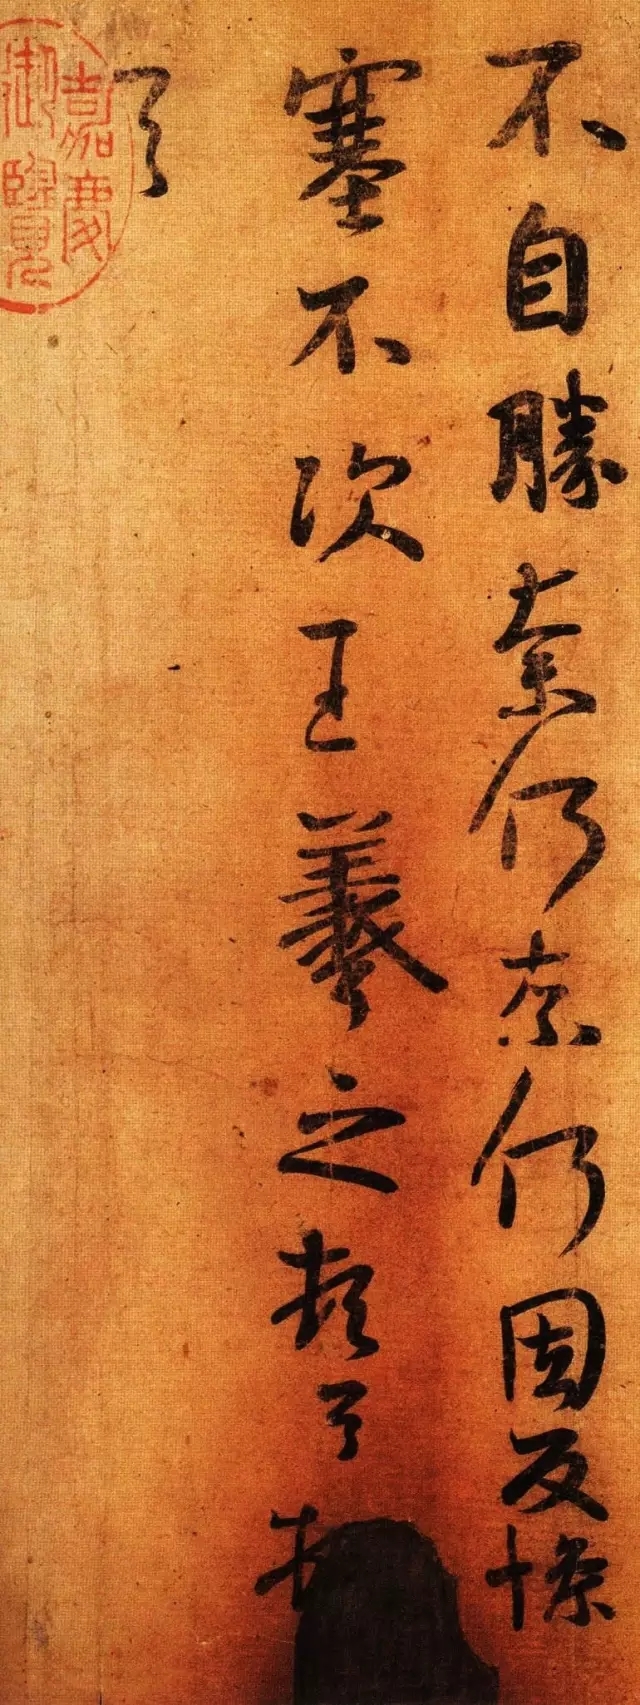 不自勝奈何奈何因反慘
塞不次王羲之頓首
首
嘉慶
御覽